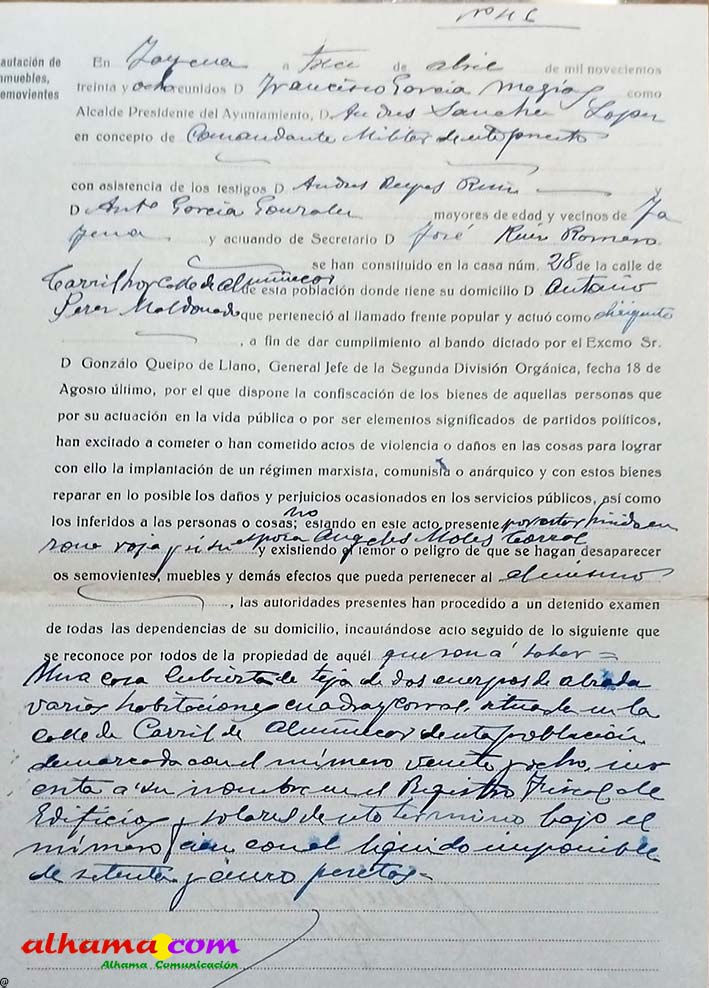 nº 46
autación de
nmuebles,
emovientes
En Jayena a trece de abril de mil novecientos
treinta y ocho reunidos D Francisco García Megías como
Alcalde Presidente del Ayuntamiento, D Andres Sanchez Lopez
en concepto de Comandante Militar de este puesto
con asistencia de los testigos D Andres Reyes Ruiz y
D Antº García Gonzalez mayores de edad y vecinos de Ja
yena y actuando de Secretario D José Ruiz Romero
se han constituido en la casa núm. 28 de la calle de
Carril hoy Calle de Almuñecar de esta población donde tiene su domicilio D Antonio
Perez Maldonado que perteneció al llamado frente popular y actuó como dirigente
, a fin de dar cumplimiento al bando dictado por el Excmo Sr.
D Gonzálo Queipo de Llano, General Jefe de la Segunda División Orgánica, fecha 18 de
Agosto último, por el que dispone la confiscación de los bienes de aquellas personas que
por su actuación en la vida pública o por ser elementos significados de partidos políticos,
han excitado a cometer o han cometido actos de violencia o daños en las cosas para lograr
con ello la implantación de un régimen marxista, comunista o anárquico y con estos bienes
reparar en lo posible los daños y perjuicios ocasionados en los servicios públicos, así como
los inferidos a las personas o cosas; no estando en este acto presente por estar huido en
zona roja y si su esposa Angeles Moles Corral y existiendo el temor o peligro de que se hagan desaparecer
os semovientes, muebles y demás efectos que pueda pertenecer al el mismo
, las autoridades presentes han procedido a un detenido examen
de todas las dependencias de su domicilio, incautándose acto seguido de lo siguiente que
se reconoce por todos de la propiedad de aquél que son a saber =
Una casa cubierta de teja de dos cuerpos de alzada
varias habitaciones cuadra y corral, situada en la
calle de Carril de Almuñecar de esta población
demarcada con el número veinte y ocho, ins
crita a su nombre en el Registro Fiscal de
Edificios y solares de este termino bajo el
número cien con el liquido imponible
de setenta y cinco pesetas =
alhama.com
Alhama Comunicación
@